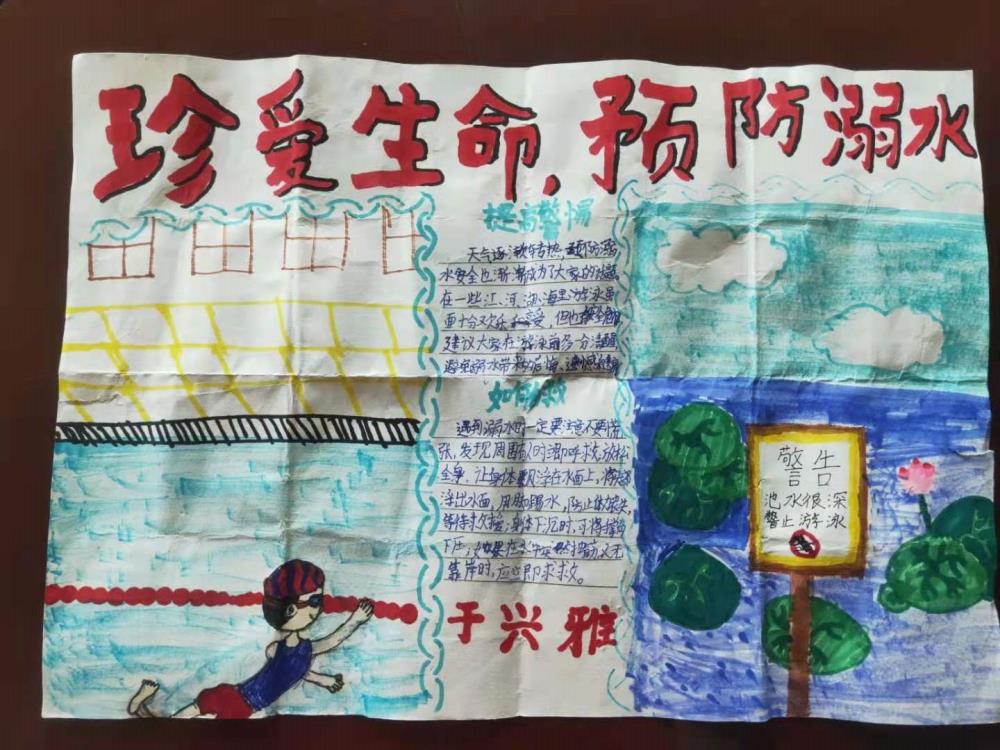 珍爱生命,预防溺水
提高警惕
天气逐渐转热,预防溺
水安全也渐渐成为了大家的
在一些江、河、湖、海里游泳虽
面十分欢乐和享受,但也
建议大家在游泳前多分
避免溺水带来的后悔、遗憾
如何救
遇到溺水时一定要注意不要慌
张,发现周围有人时立即呼救,放松
全身,让身体飘浮在水面上,将头部
浮出水面,用脚踢水,防止体力丧失,
等待救援;身体下沉时,可将掌
下压,如果在水中突然抽筋,又无
靠岸时,应立即求救。
于兴雅
警告
池水很深
警止游泳